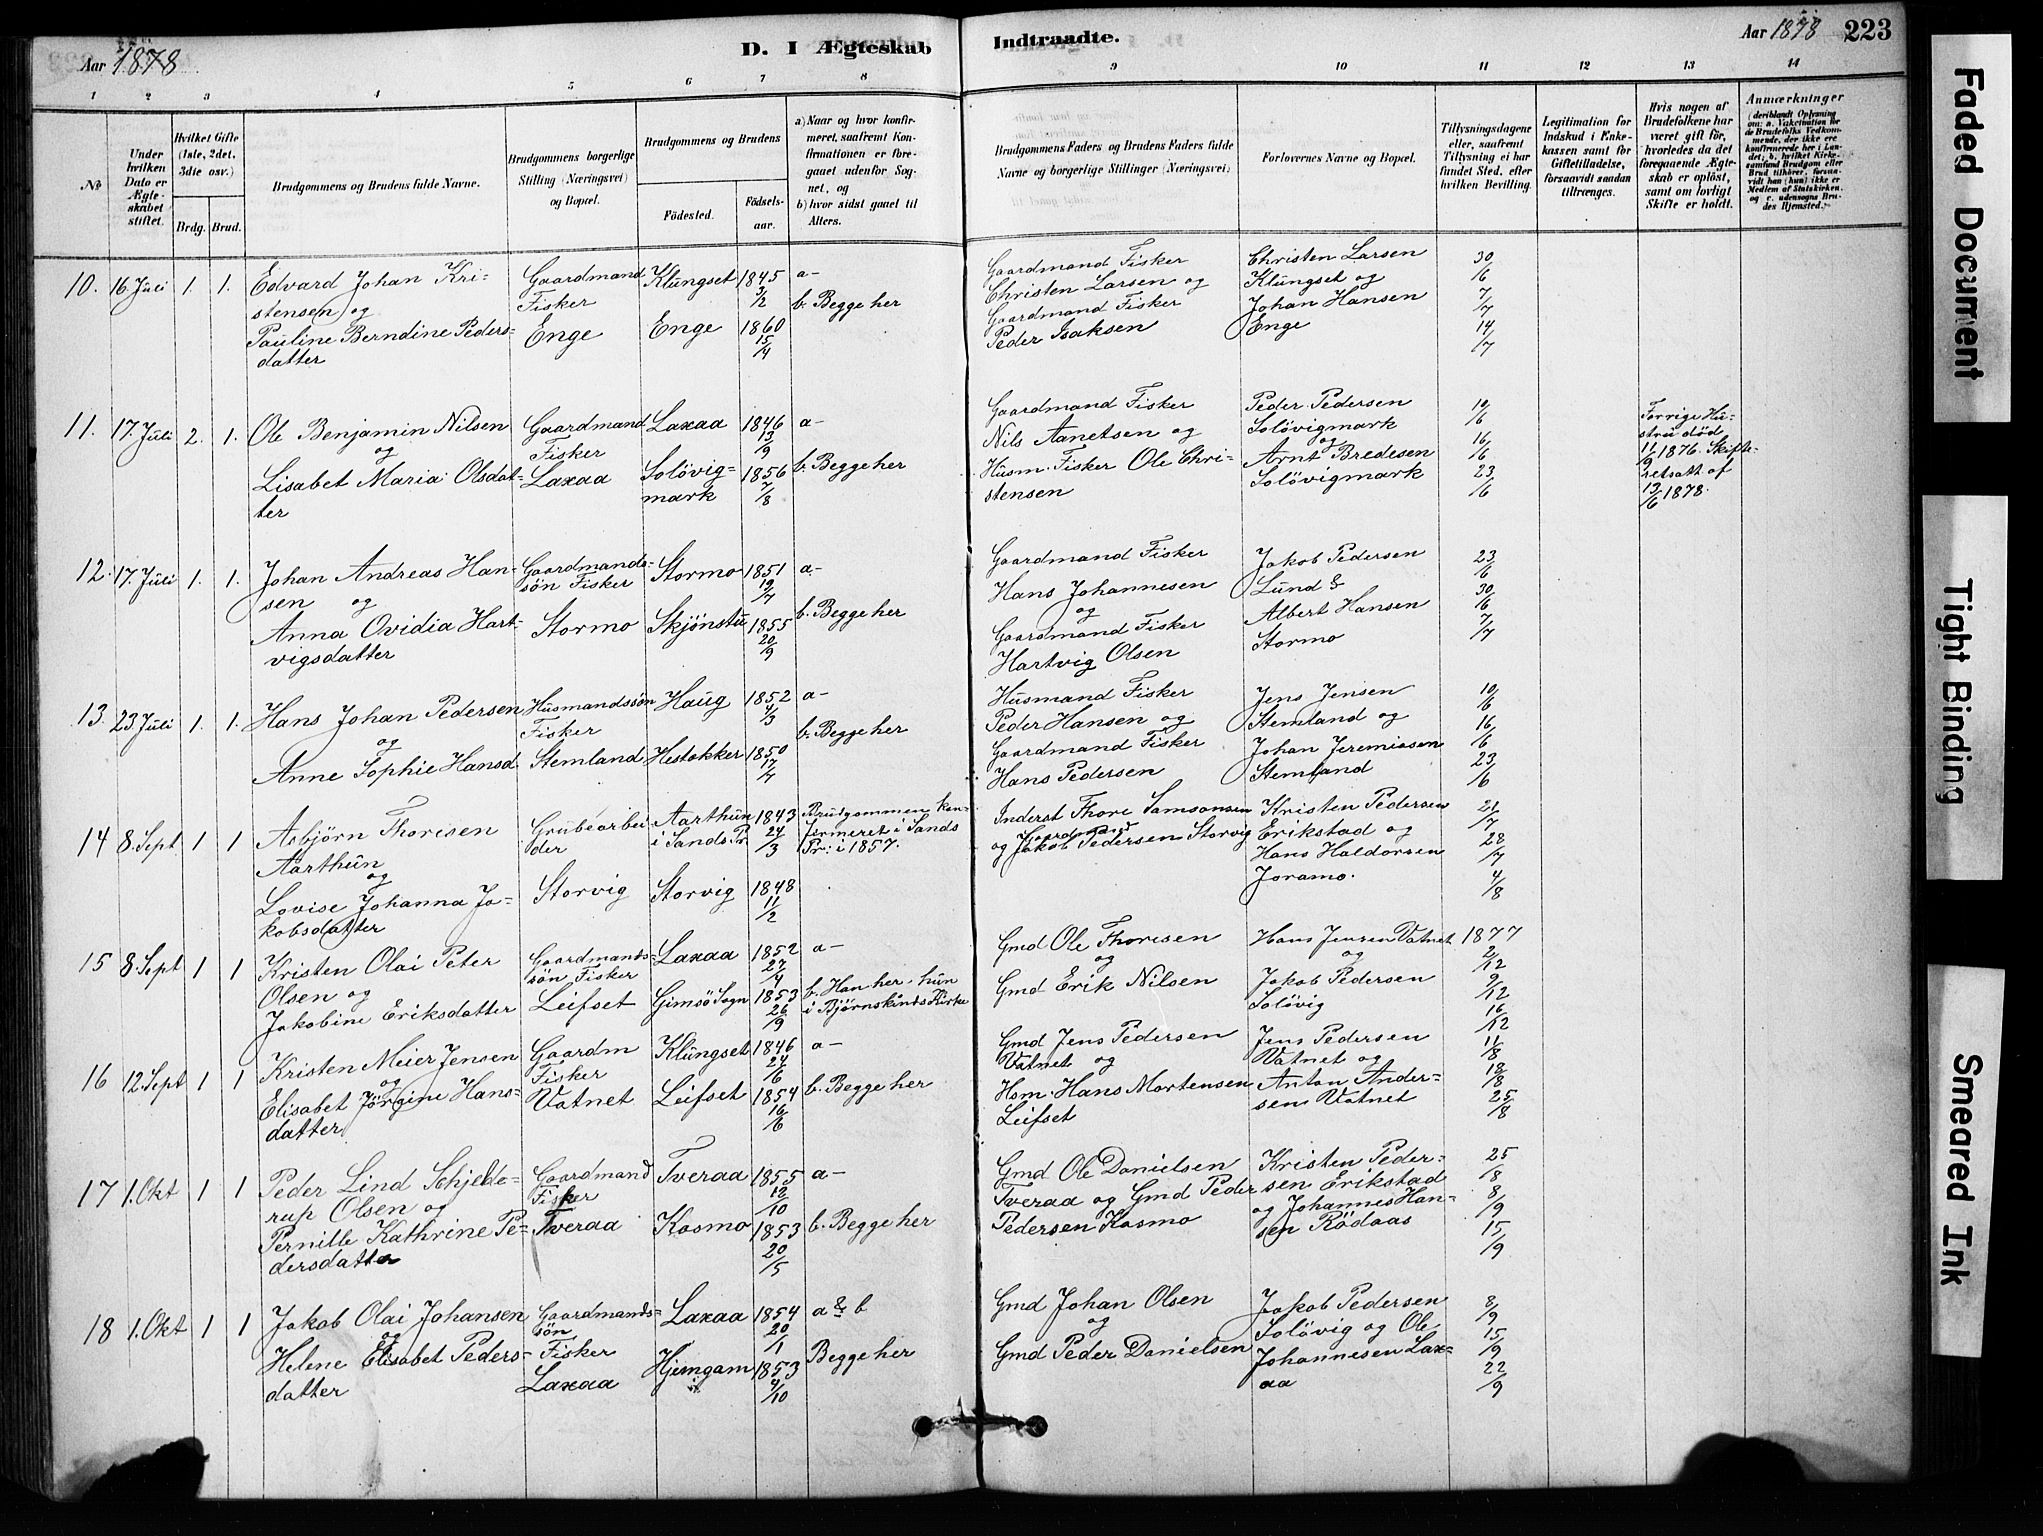 Aar 1878
D. I Ægteskab Indtraadte.
Aar 1878 223
1 2 3 4 5 6 7 8 9 10 11 12 13 14
No
Under hvilken Dato er Ægteskabet stiftet.
Hvilket Gifte (1ste, 2det, 3die osv.)
Brdg. Brud.
Brudgommens og Brudens fulde Navne.
Brudgommens borgerlige Stilling (Næringsvei) og Bopæl.
Brudgommens og Brudens
Födested.
Födselsaar.
a) Naar og hvor konfirmeret, saafremt Konfirmationen er foregaaet udenfor Sognet, og
b) hvor sidst gaaet til Alters.
Brudgommens Faders og Brudens Faders fulde Navne og borgerlige Stillinger (Næringsvei)
Forlovernes Navne og Bopæl.
Tillysningsdagene eller, saafremt Tillysning ei har fundet Sted, efter hvilken Bevilling.
Legitimation for Indskud i Enkekassen samt for Giftetilladelse, forsaavidt saadan tiltrænges.
Hvis nogen af Brudefolkene har været gift før, hvorledes da det foregaaende Ægteskab er oplöst, samt om lovligt Skifte er holdt.
Anmærkninger
(deriblandt Oplysning om: a. Vakcination for de Brudefolks Vedkommende, der ikke ere konfirmerede her i Landet; b. hvilket Kirkesamfund Brudgom eller Brud tilhører, forsaavidt han (hun) ikke er Medlem af Statskirken, og c. udensogns Brudes Hjemsted.)
10. 16 Juli 1. 1. Edvard Johan Kri-
stensen og
Pauline Berndine Peders-
datter
Gaardmand
Fisker
Enge
Klungset 1845 3/2
Enge 1860 15/4
a-
b. Begge her
Gaardmand Fisker
Christen Larsen og
Gaardmand Fisker
Peder Isaksen
Christen Larsen
Klungset og
Johan Hansen
Enge
30/6
7/7
14/7
11. 17. Juli 2. 1. Ole Benjamin Nilsen
og
Lisabet Maria Olsdat-
ter
Gaardmand
Fisker
Laxaa
Laxaa 1846 13/9
Solövig-
mark 1856 7/8
a-
b. Begge her
Gaardmand Fisker
Nils Aanetsen og
Husm. Fisker Ole Chri-
stensen
Peder Pedersen
Solövigmark
og
Arnt Bredesen
Solövigmark
10/6
16/6
23/6
Forrige Hu-
stru död
11/9 1876. Skifte-
retsatt. af
13/6 1878.
12. 17. Juli 1. 1. Johan Andreas Han-
sen og
Anna Ovidia Hart-
vigsdatter
Gaardmands-
sön Fisker
Stormo
Stormo 1851 19/7
Skjönstu 1855 20/9
a-
b. Begge her
Gaardmand Fisker
Hans Johannesen
og
Gaardmand Fisker
Hartvig Olsen
Jakob Pedersen
Lund &
Albert Hansen
Stormo
23/6
30/6
7/7
13. 23 Juli 1. 1. Hans Johan Pedersen
og
Anne Sophie Hansd.
Husmandssön
Fisker
Stemland
Haug 1852 4/3
Hestakker 1850 17/7
a-
b. Begge her
Husmand Fisker
Peder Hansen og
Gaardmand Fisker
Hans Pedersen
Jens Jensen
Stemland og
Johan Jeremiasen
Stemland
10/6
16/6
23/6
14 8. Sept 1 1 Asbjörn Thorisen
Aarthun
og
Lovise Johanna Ja-
kobsdatter
Grubearbei
der
Storvig
Aarthun
i Sands Pr 1843 24/3
Storvig 1848 11/2
Brudgommen kon-
firmeret i Sands
Pr: i 1857.
Inderst Thore Samsonsen
og Gaardmand Jakob Pedersen Storvig
Kristen Pedersen
Erikstad og
Hans Haldorsen
Joramo.
21/7
28/7
4/8
15 8. Sept 1 1 Kristen Olai Peter
Olsen og
Jakobine Eriksdatter
Gaardmands-
sön Fisker
Leifset
Laxaa 1852 27/4
Gimsö Sogn 1853 26/9
a-
b. Han her, hun
i Bjørnskinds Kirke
Gmd Ole Thoresen
og
Gmd Erik Nilsen
Hans Jensen Vatnet
og
Jakob Pedersen
Solövig
1877
2/12
9/12
16/12
16 12. Sept 1 1 Kristen Meier Jensen
og
Elisabet Jörgine Hans-
datter
Gaardm
Fisker
Vatnet
Klungset 1846 24/6
Leifset 1854 16/6
a-
b. Begge her
Gmd Jens Pedersen
Vatnet og
Hsm. Hans Mortensen
Leifset
Jens Pedersen
Vatnet og
Anton Ander-
sen Vatnet
11/8
18/8
25/8
17 1. Okt 1 1 Peder Lind Schjelde-
rup Olsen og
Pernille Kathrine Pe-
dersdatter
Gaardmand
Fisker
Tveraa
Tveraa 1855 12/10
Kosmo 1853 20/5
a-
b. Begge her
Gmd Ole Danielsen
Tveraa og Gmd Peder
Pedersen Kosmo
Kristen Peder-
sen Erikstad
og Johannes Han-
sen Rödaas
25/8
8/9
15/9
18 1. Okt 1 1 Jakob Olai Johansen
og
Helene Elisabet Peders-
datter
Gaardmands-
sön
Fisker
Laxaa
Laxaa 1854 20/1
Hjemgam 1853 4/10
a & b
Begge her
Gmd Johan Olsen
og
Gmd Peder Danielsen
Jakob Pedersen
Solövig og Ole
Johannesen Lax-
aa
8/9
15/9
22/9
Faded Document
Tight Binding
Smeared Ink